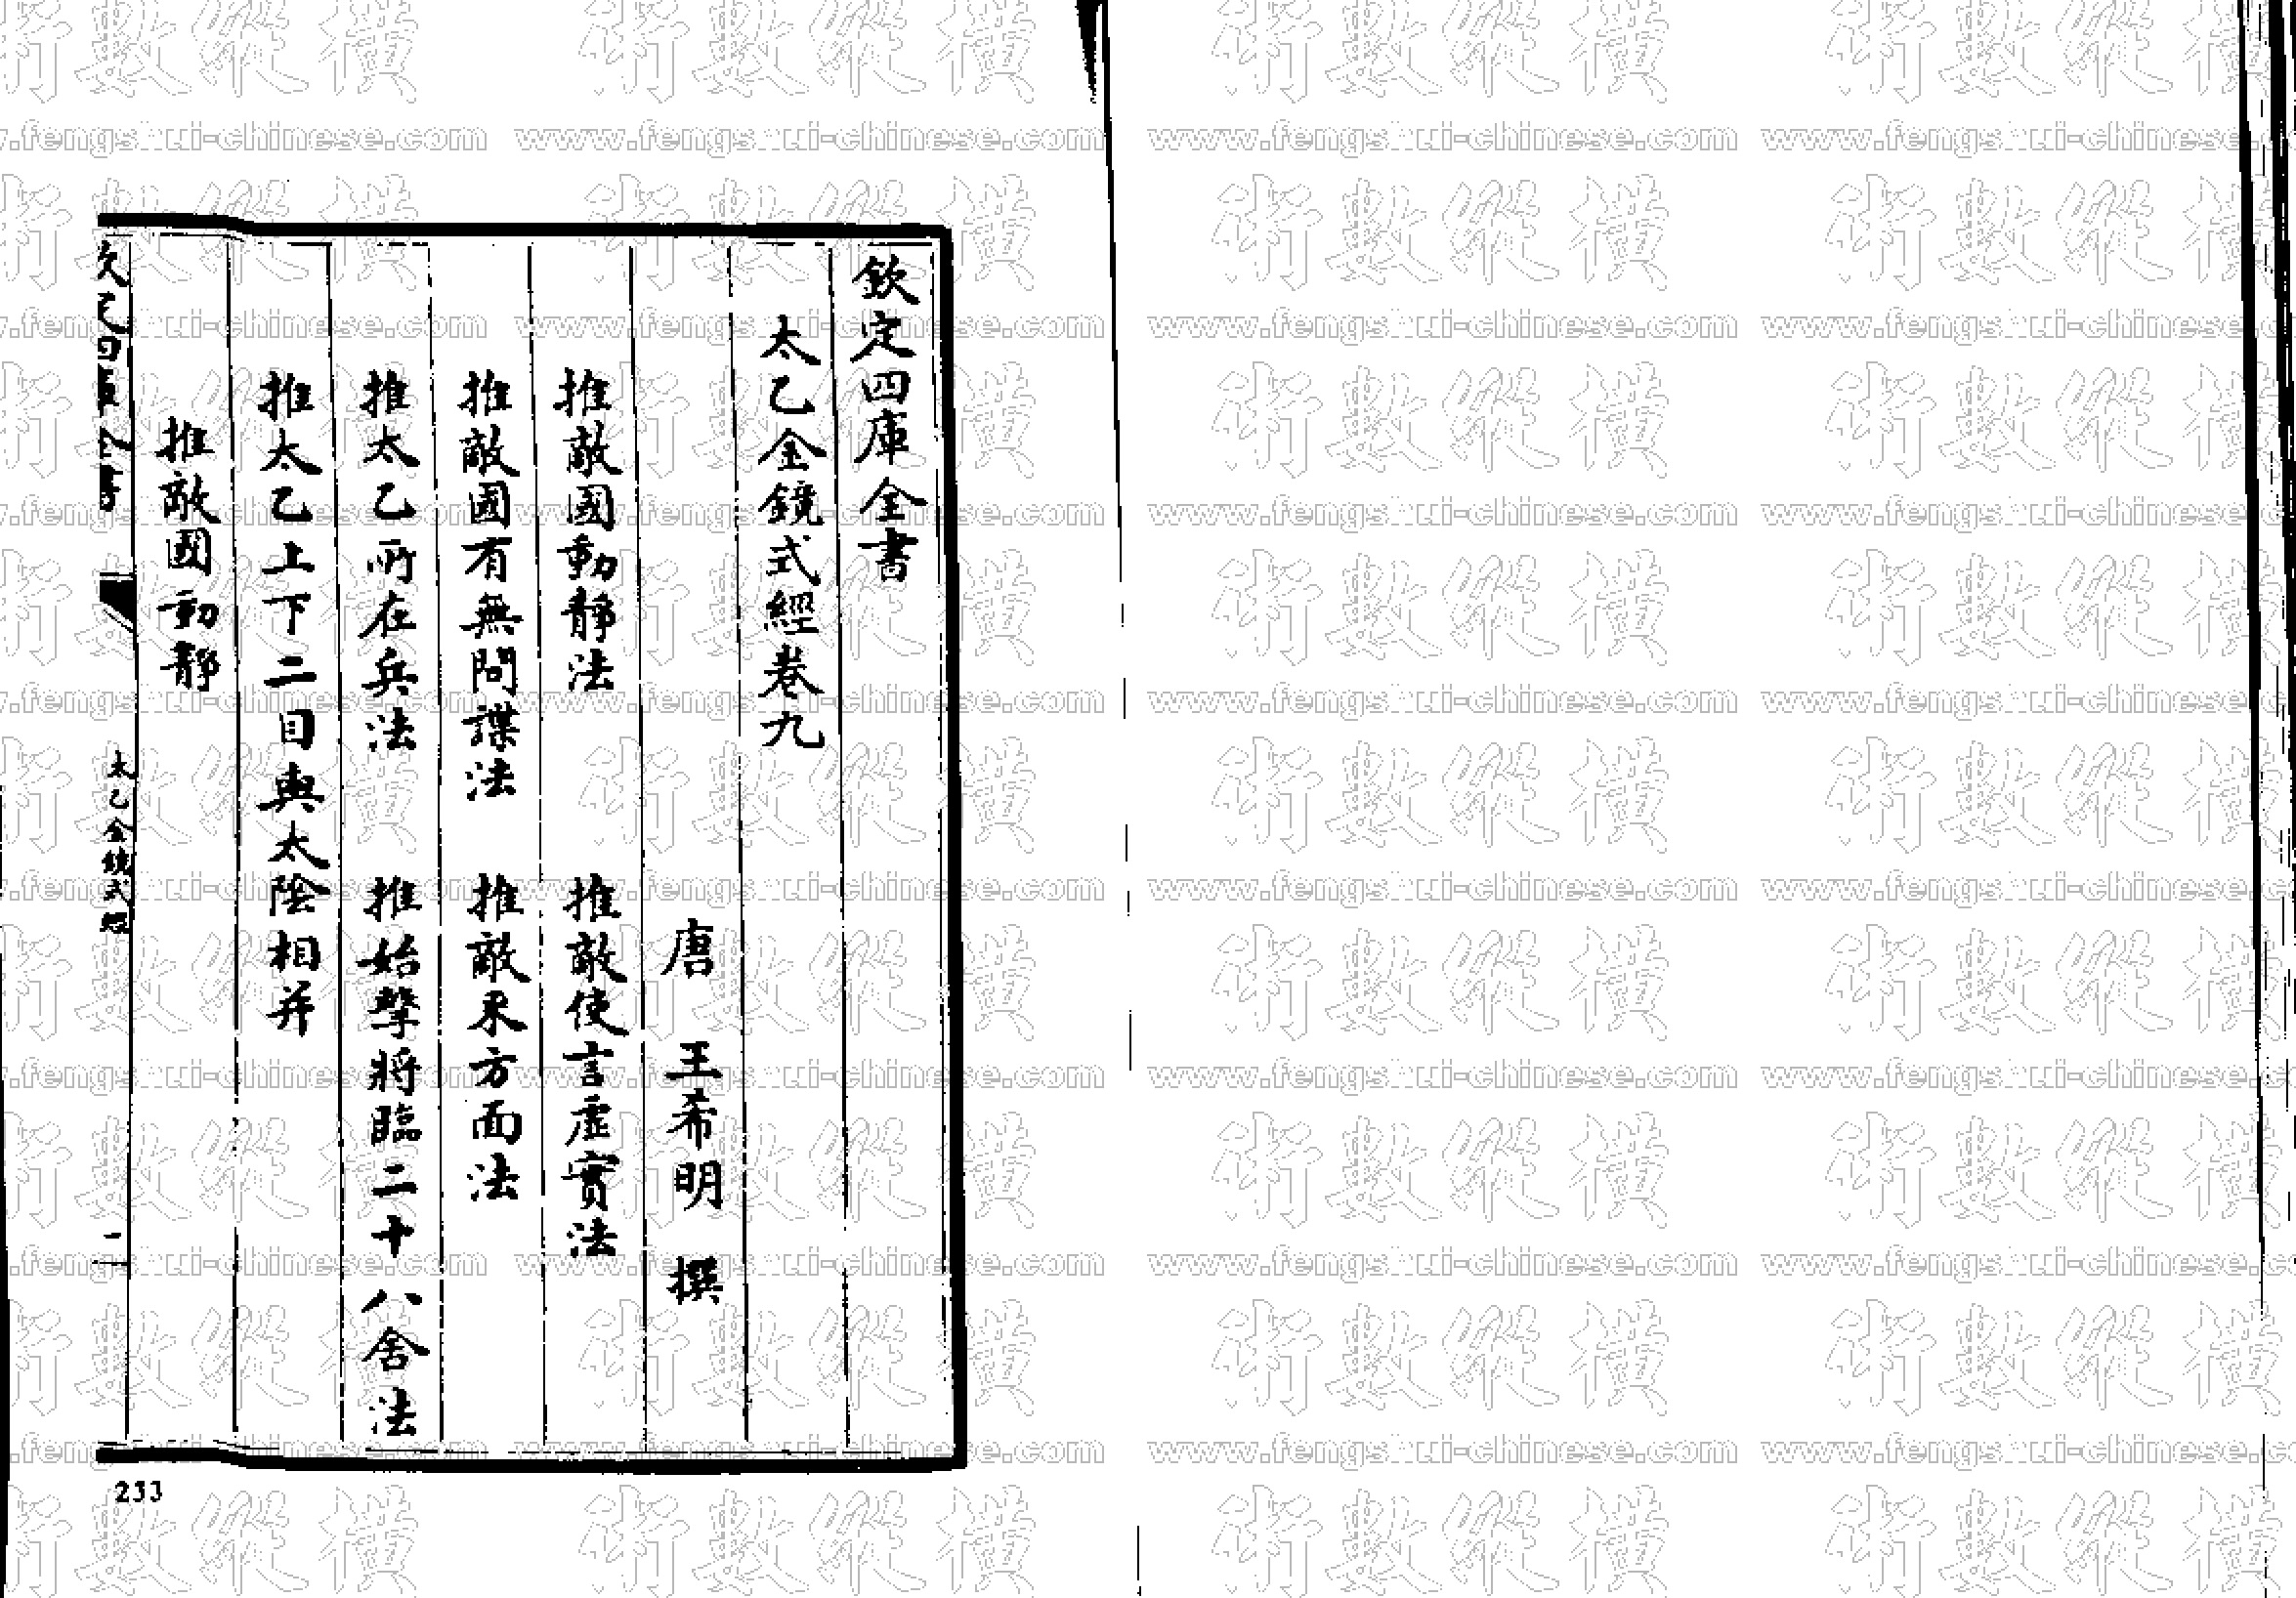 欽定四庫全書
太乙金鏡式經卷九
唐 王希明 撰
推敵國動靜法 推敵使言虛實法
推敵國有無間諜法 推敵來方面法
推太乙所在兵法 推始擊將臨二十八舍法
推太乙上下二目與太陰相并
推敵國動靜
欽定四庫全書 太乙金鏡式經 一
233
術數縱橫
www.fengshui-chinese.com